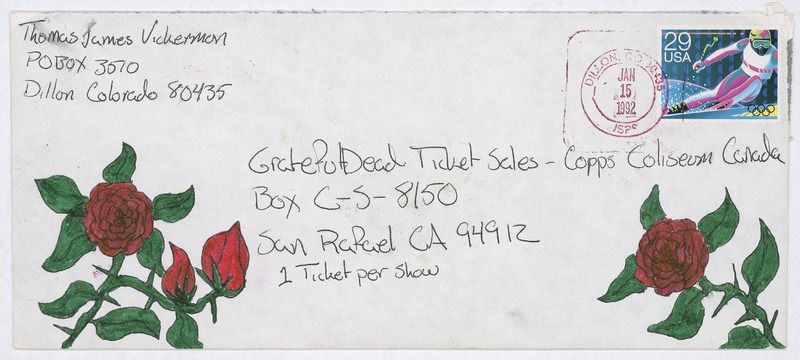 Thomas James Vickerman
PO Box 3570
Dillon Colorado 80435
29
USA
DILLON, CO 80435
JAN
15
1992
USPS
Grateful Dead Ticket Sales - Copps Coliseum Canada
Box C-S-8150
San Rafael CA 94912
1 Ticket per show